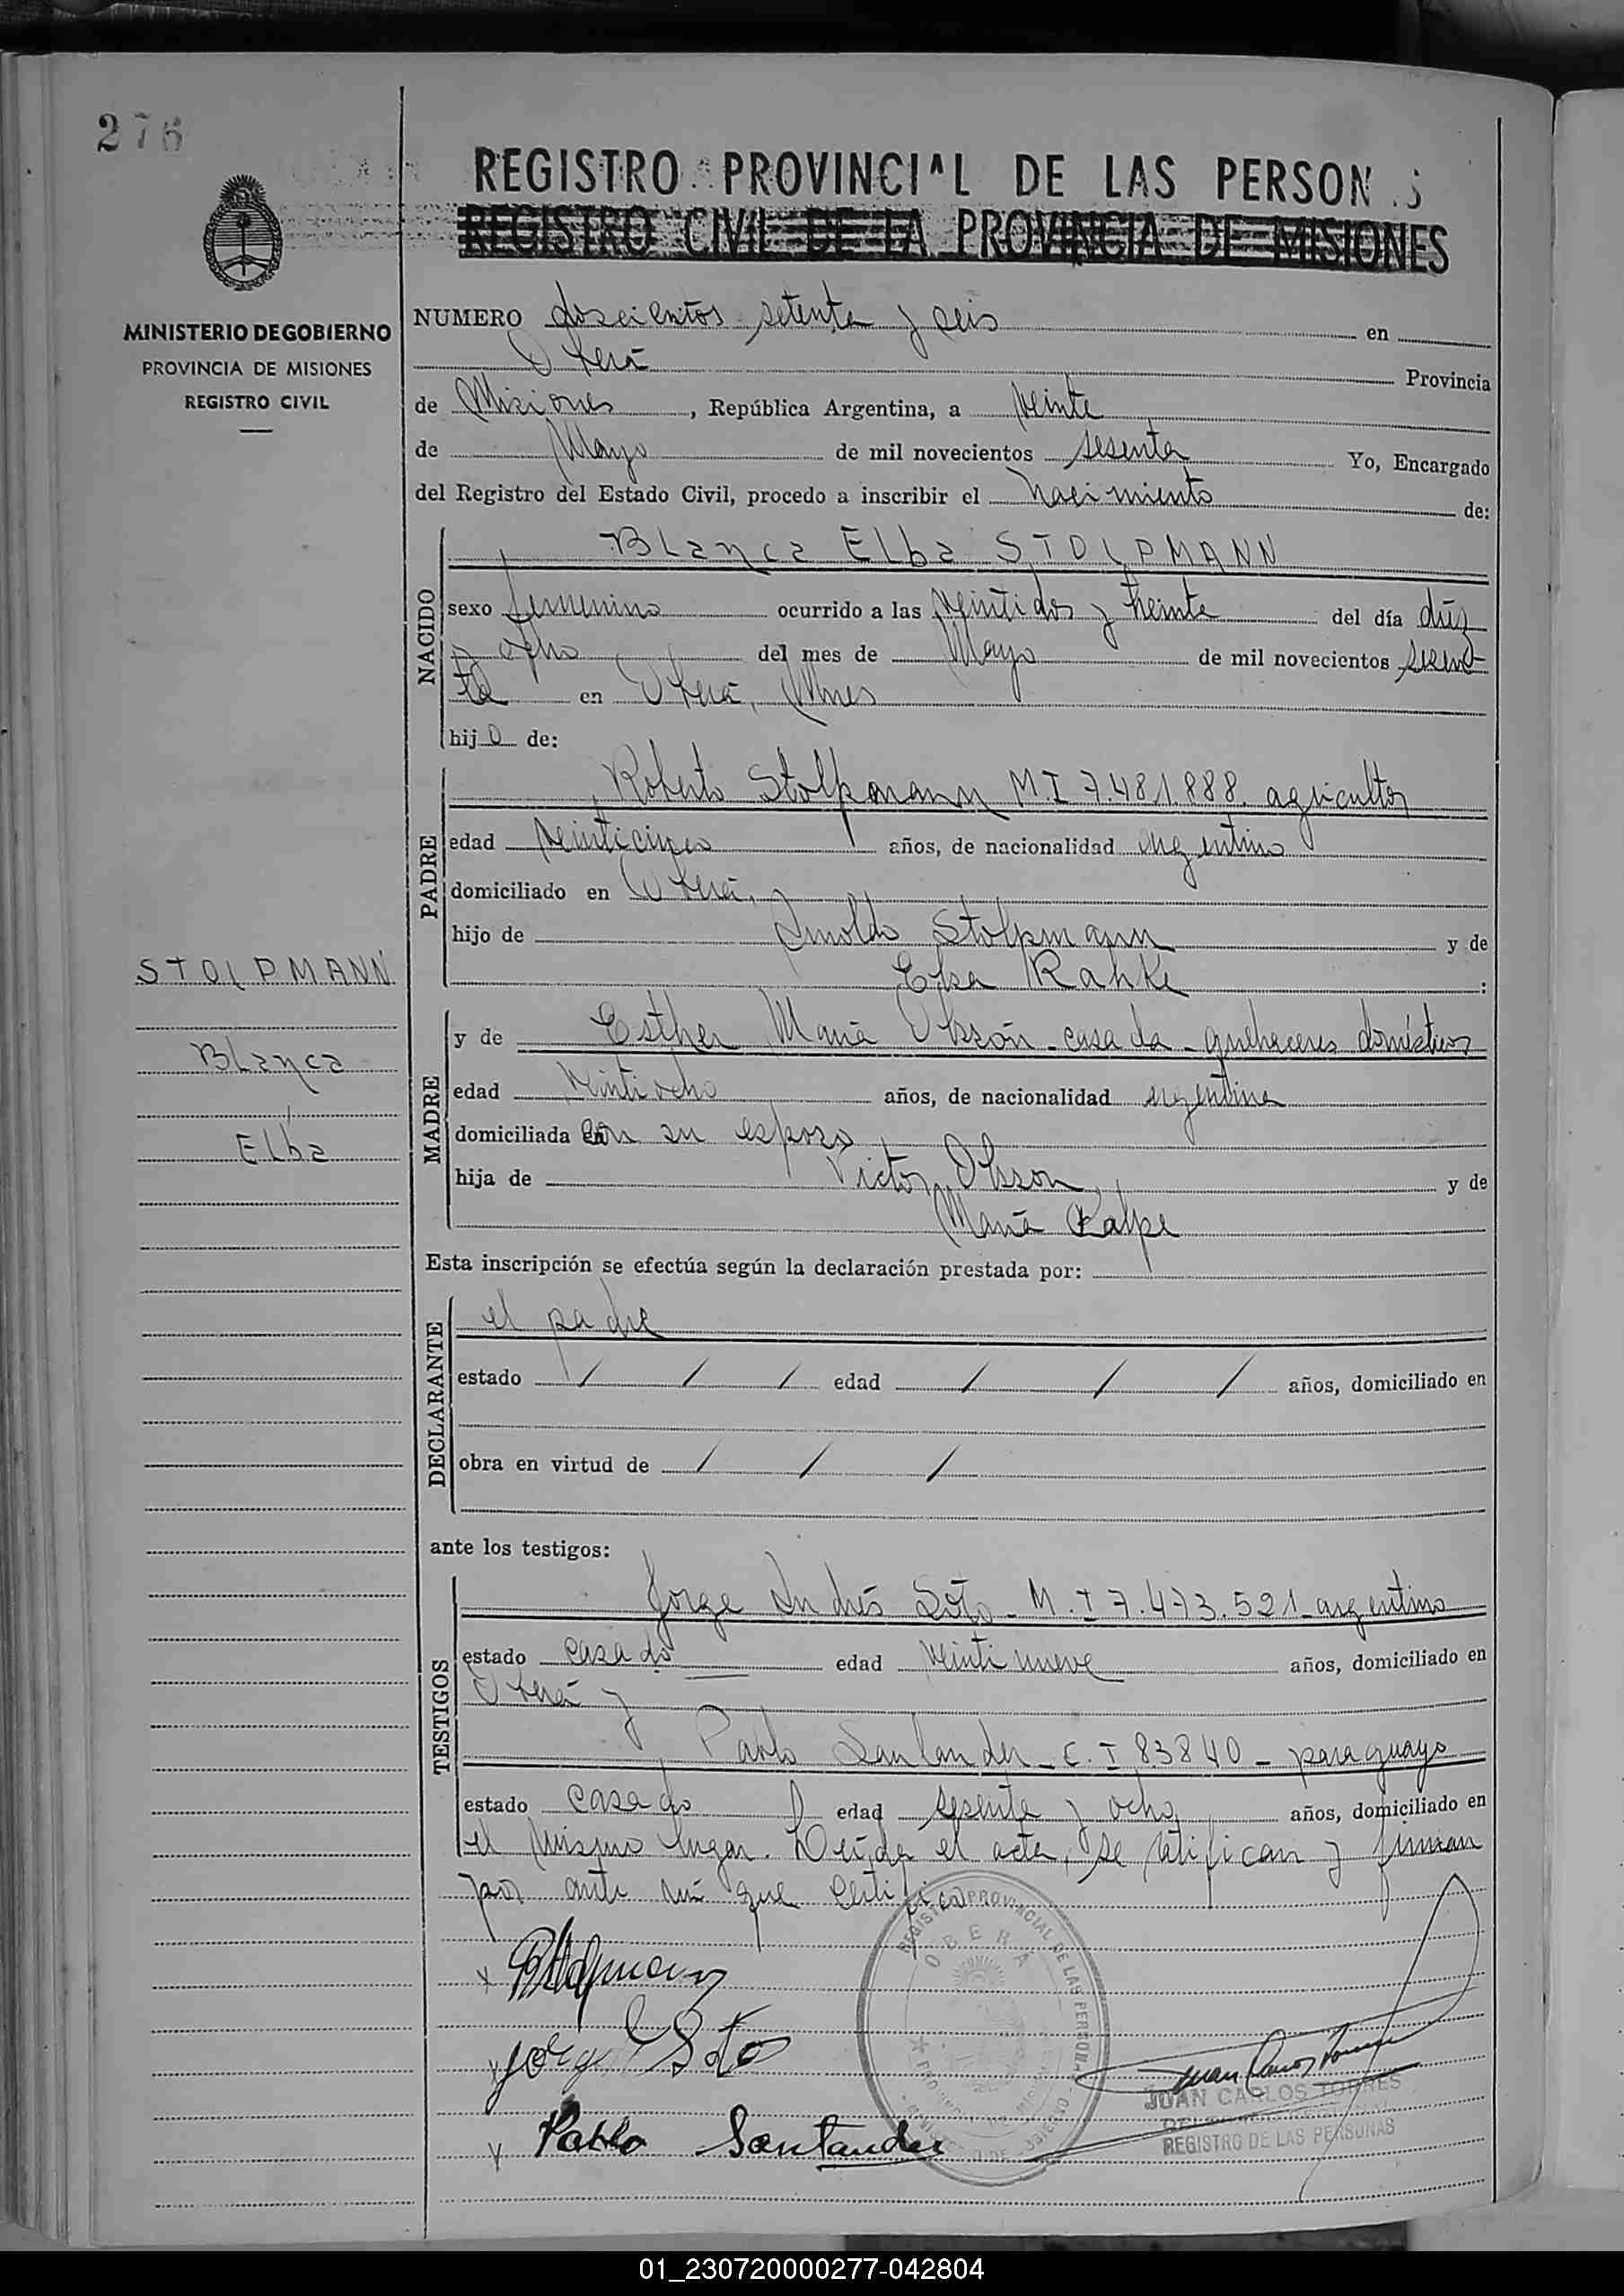 276
REGISTRO PROVINCIAL DE LAS PERSON S
REGISTRO CIVIL DE LA PROVINCIA DE MISIONES
MINISTERIO DE GOBIERNO
PROVINCIA DE MISIONES
REGISTRO CIVIL
NUMERO doscientos setenta y seis en
Oberá Provincia
de Misiones, República Argentina, a veinte
de Mayo de mil novecientos sesenta Yo, Encargado
del Registro del Estado Civil, procedo a inscribir el nacimiento de:
NACIDO
Blanca Elba STOLPMANN
sexo femenino ocurrido a las veintidos y treinta del día diez
y ocho del mes de Mayo de mil novecientos sesen-
ta en Oberá, Mnes
hijo de:
PADRE
Roberto Stolpmann M.I 7.481.888. agricultor
edad veinticinco años, de nacionalidad argentino
domiciliado en Oberá,
hijo de Arnoldo Stolpmann y de
Elsa Rahke :
MADRE
y de Esther María Olsson - casada - quehaceres domésticos
edad veintiocho años, de nacionalidad argentina
domiciliada con su esposo
hija de Victor Olsson, y de
María Kalpe
Esta inscripción se efectúa según la declaración prestada por:
DECLARANTE
el padre
estado / / / edad / / / años, domiciliado en
obra en virtud de / / /
ante los testigos:
TESTIGOS
Jorge Andrés Soto - M.I 7.473.521 - argentino
estado casado edad veintinueve años, domiciliado en
Oberá y
Pablo Santander - C.I 83840 - paraguayo
estado casado edad sesenta y ocho años, domiciliado en
el mismo lugar. Leída el acta, se ratifican y firman
por ante mí que certifico
STOLPMANN
Blanca
Elba
x RStolpmann
x Jorge Soto
x Pablo Santander
REGISTRO PROVINCIAL DE LAS PERSONAS
OBERÁ
Juan Carlos Torres
JUAN CARLOS TORRES
REGISTRO DE LAS PERSONAS
01_230720000277-042804